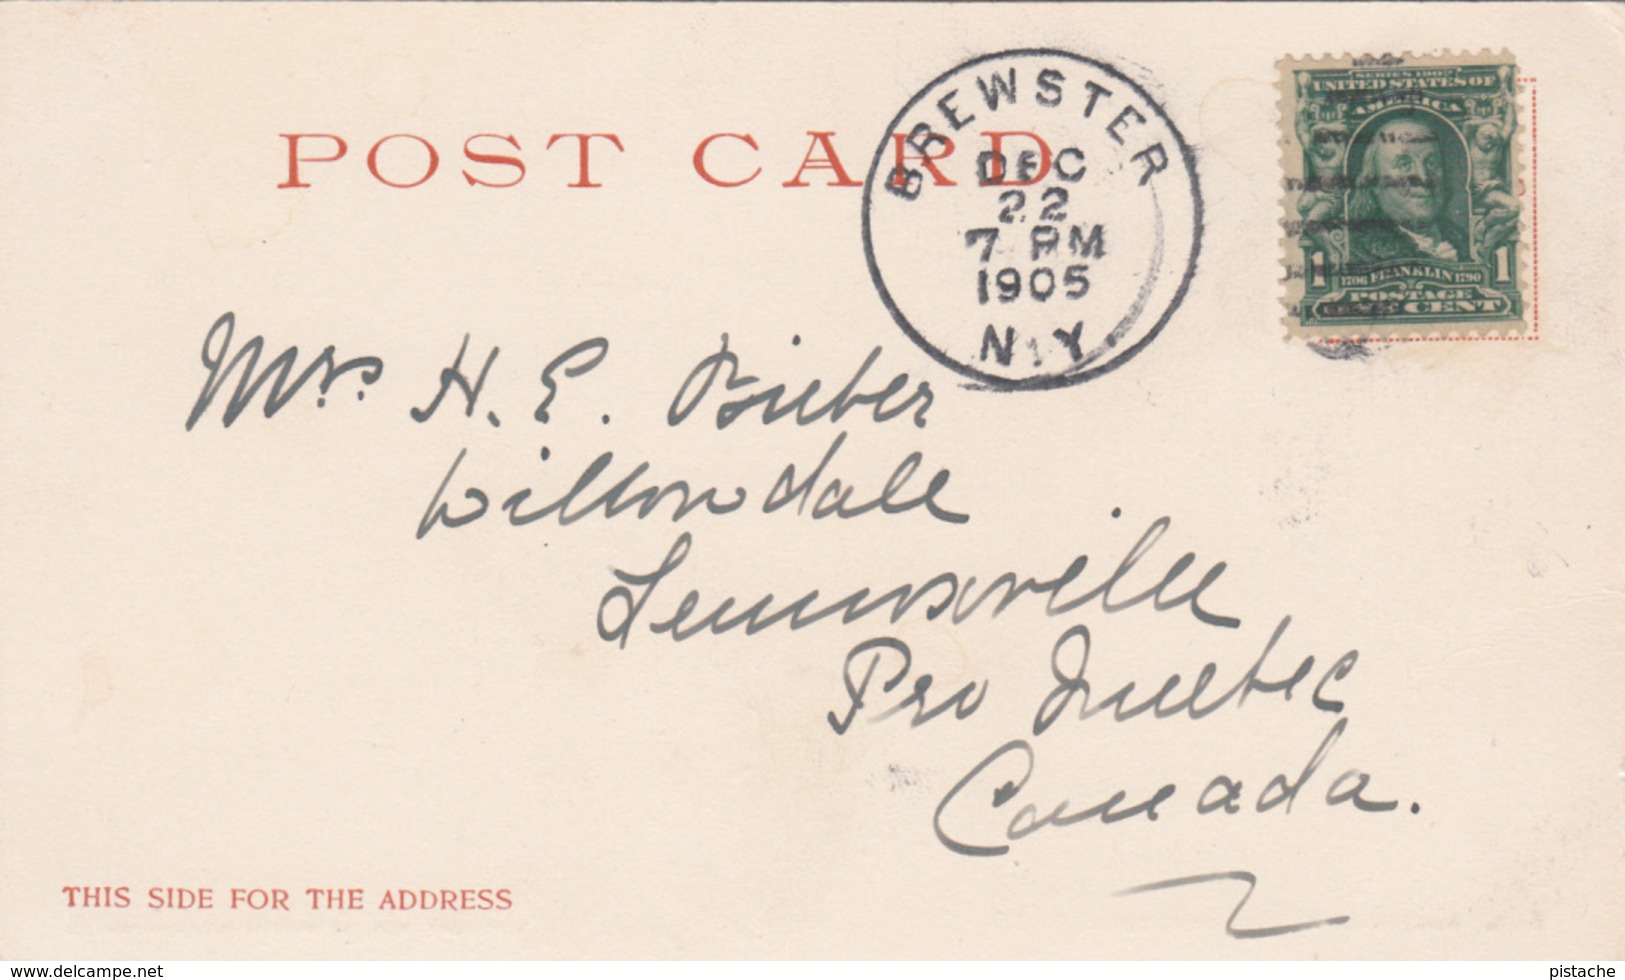 POST CARD
BREWSTER
DEC
22
7 PM
1905
N.Y.
SERIES 1902
UNITED STATES OF
AMERICA
1706 FRANKLIN 1790
1 1
POSTAGE
CENT
Mrs. H. E. Bieber
Willowdale
Lennoxville
Pro Quebec
Canada.
THIS SIDE FOR THE ADDRESS
www.delcampe.net
pistache